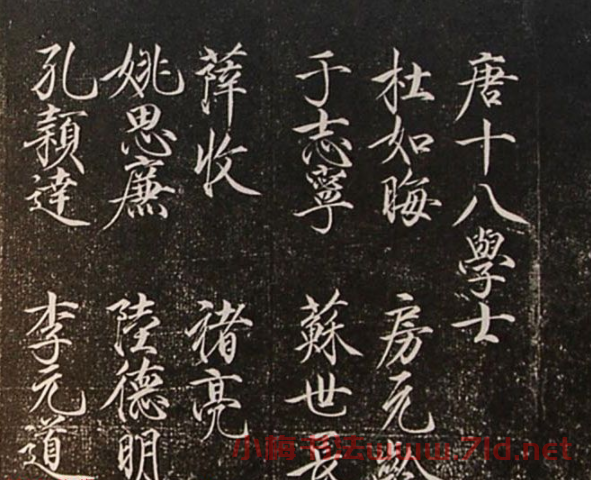 唐十八學士
杜如晦 房元齡
于志寧 蘇世長
薛收 褚亮
姚思廉 陸德明
孔穎達 李元道
小梅书法www.7ld.net